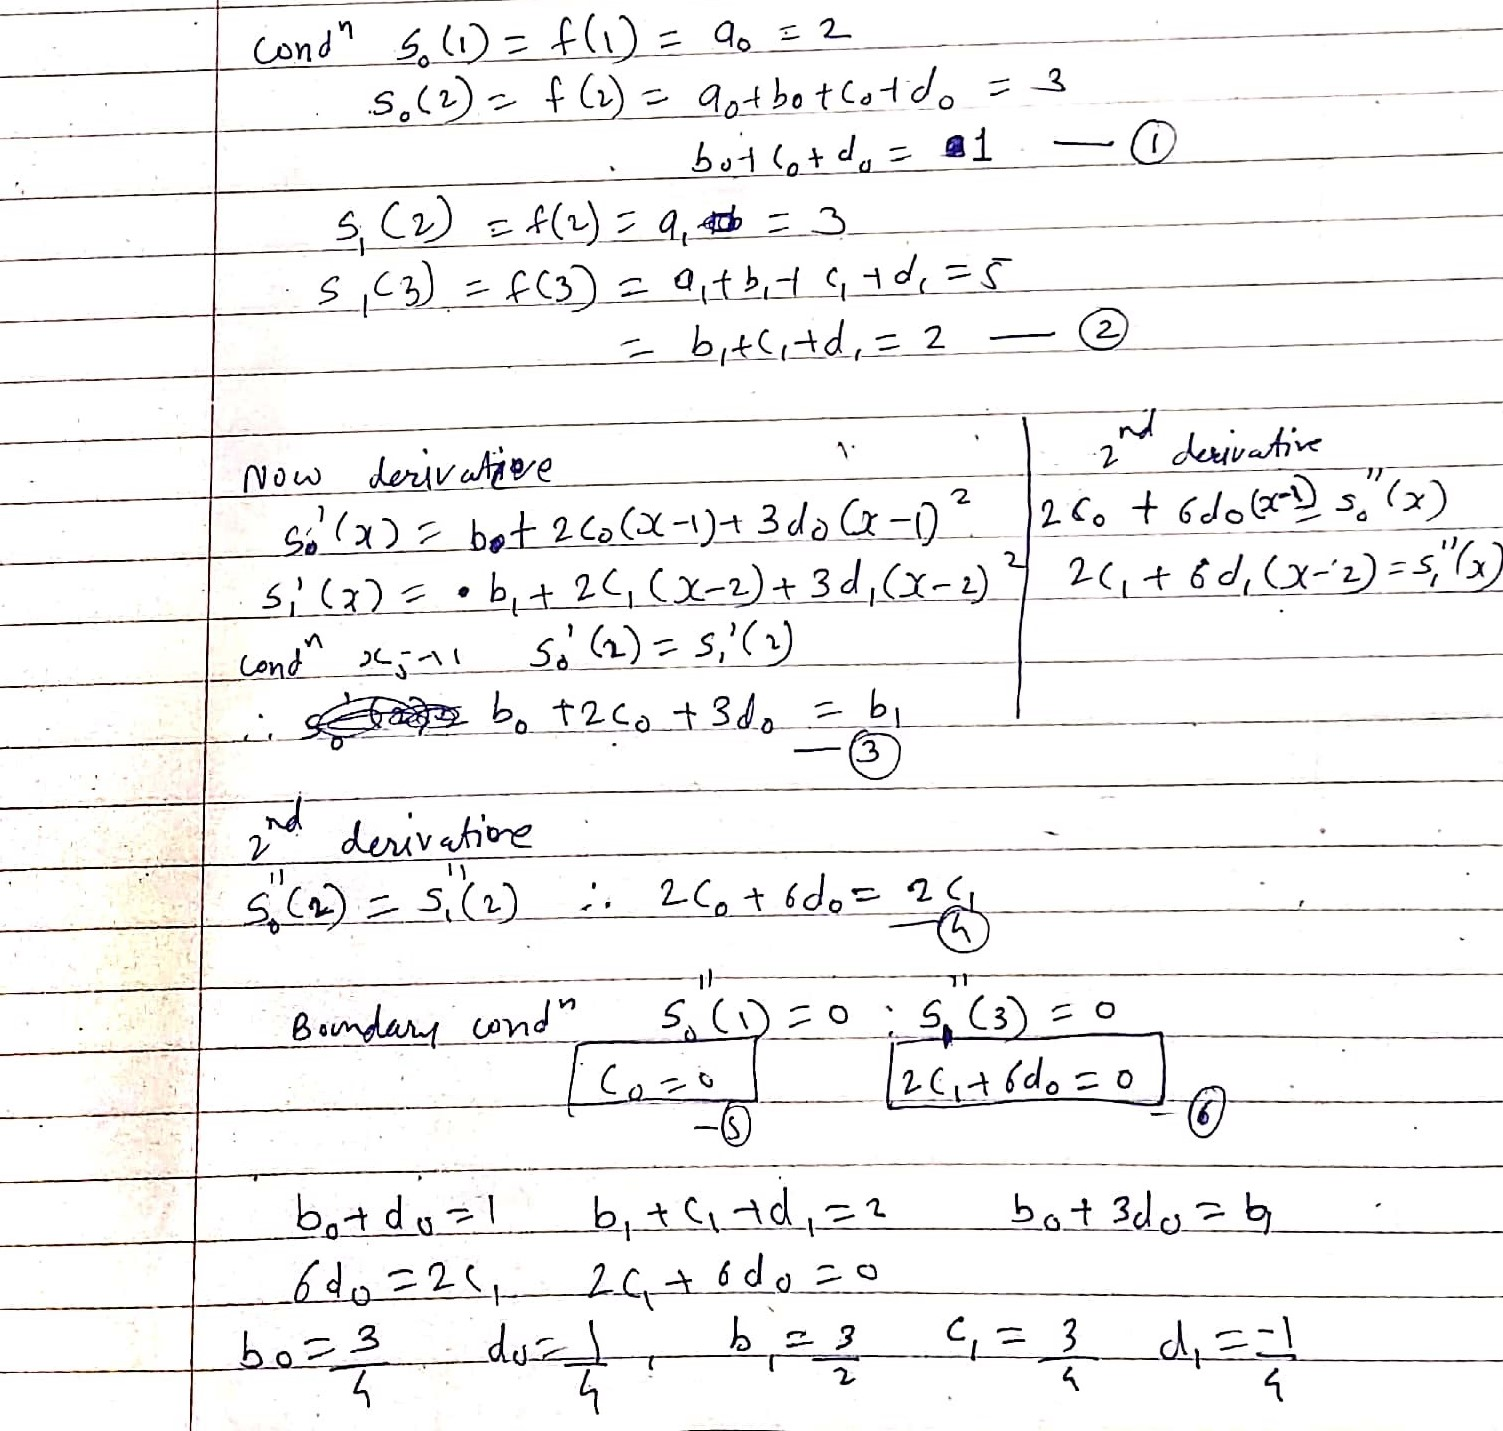 condⁿ S₀(1) = f(1) = a₀ = 2
S₀(2) = f(2) = a₀+b₀+c₀+d₀ = 3
b₀+c₀+d₀ = 1 — ①
S₁(2) = f(2) = a₁ = 3
S₁(3) = f(3) = a₁+b₁+c₁+d₁ = 5
= b₁+c₁+d₁ = 2 — ②
Now derivative
S₀'(x) = b₀+2c₀(x-1)+3d₀(x-1)²
S₁'(x) = b₁+2c₁(x-2)+3d₁(x-2)²
2nd derivative
2c₀ + 6d₀(x-1) S₀''(x)
2c₁ + 6d₁(x-2) = S₁''(x)
condⁿ S₀'(2) = S₁'(2)
∴ b₀ +2c₀ +3d₀ = b₁
— ③
2nd derivative
S₀''(2) = S₁''(2) ∴ 2c₀ + 6d₀ = 2c₁
— ④
Boundary condⁿ S₀''(1) = 0 : S₁''(3) = 0
c₀ = 0 2c₁+6d₀ = 0
— ⑤ — ⑥
b₀+d₀ = 1 b₁+c₁+d₁ = 2 b₀+3d₀ = b₁
6d₀ = 2c₁ 2c₁+6d₀ = 0
b₀ = 3/4 d₀ = 1/4, b₁ = 3/2 c₁ = 3/4 d₁ = -1/4